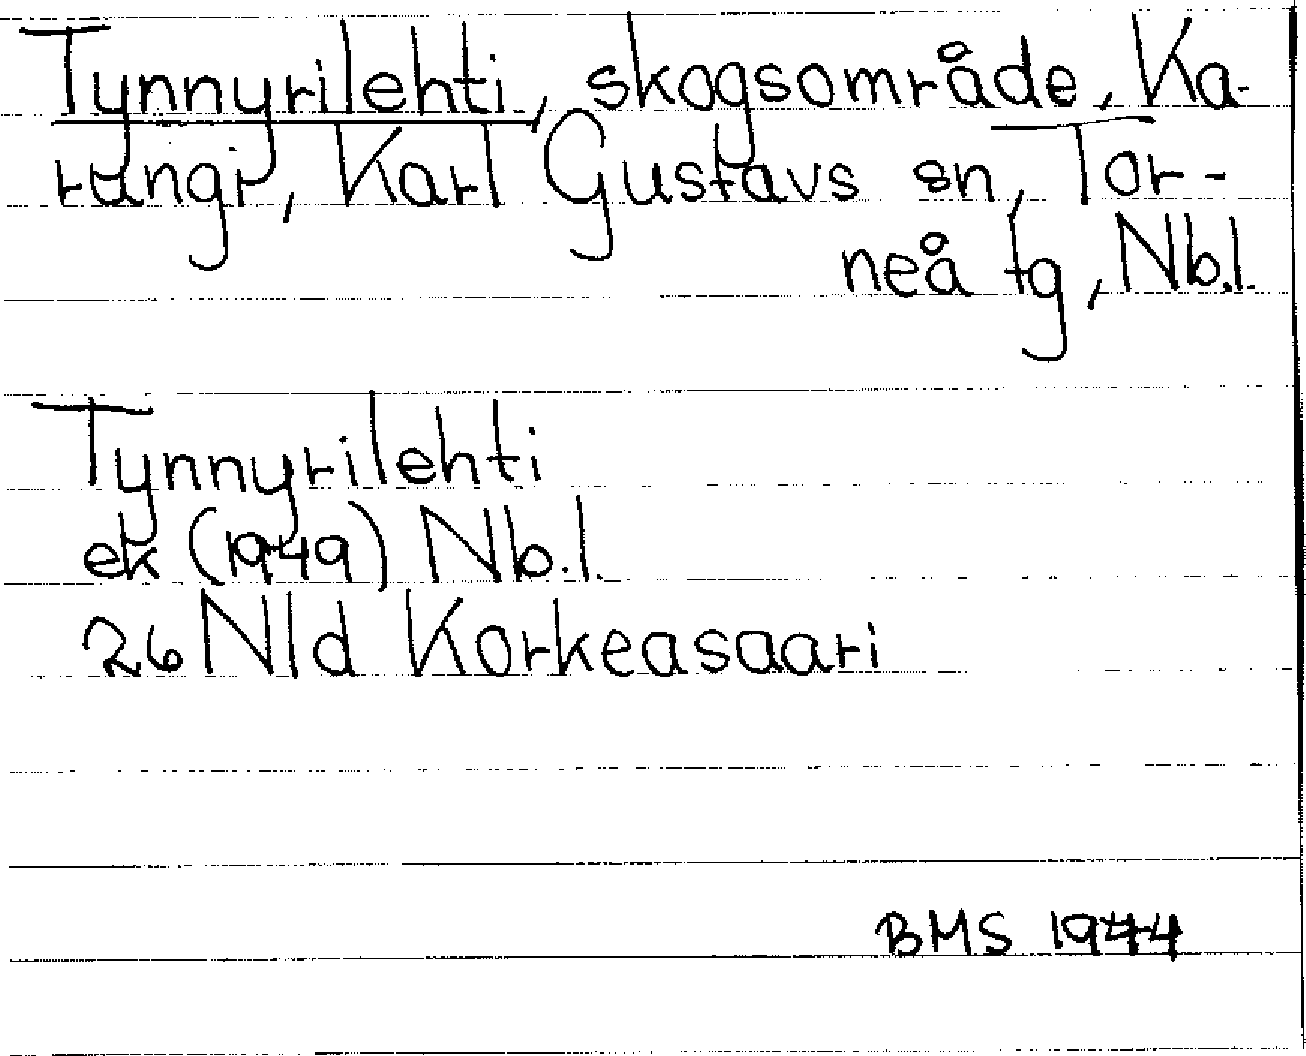 Tynnyrilehti, skogsområde, Ka-
rungi, Karl Gustavs sn, Tor-
neå fg, Nb.l.
Tynnyrilehti
ek (1949) Nb.l.
26 Nld Korkeasaari
BMS 1944